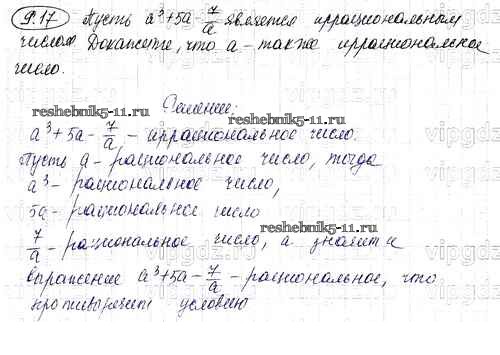 9.17 Пусть a³+5a-7/a является иррациональным
числом Докажите, что a - также иррациональное
число.
Решение:
reshebnik5-11.ru
reshebnik5-11.ru
a³+5a-7/a - иррациональное число.
Пусть a - рациональное число, тогда
a³ - рациональное число,
5a - рациональное число
reshebnik5-11.ru
7/a - рациональное число, а значит и
выражение a³+5a-7/a - рациональное, что
противоречит условию